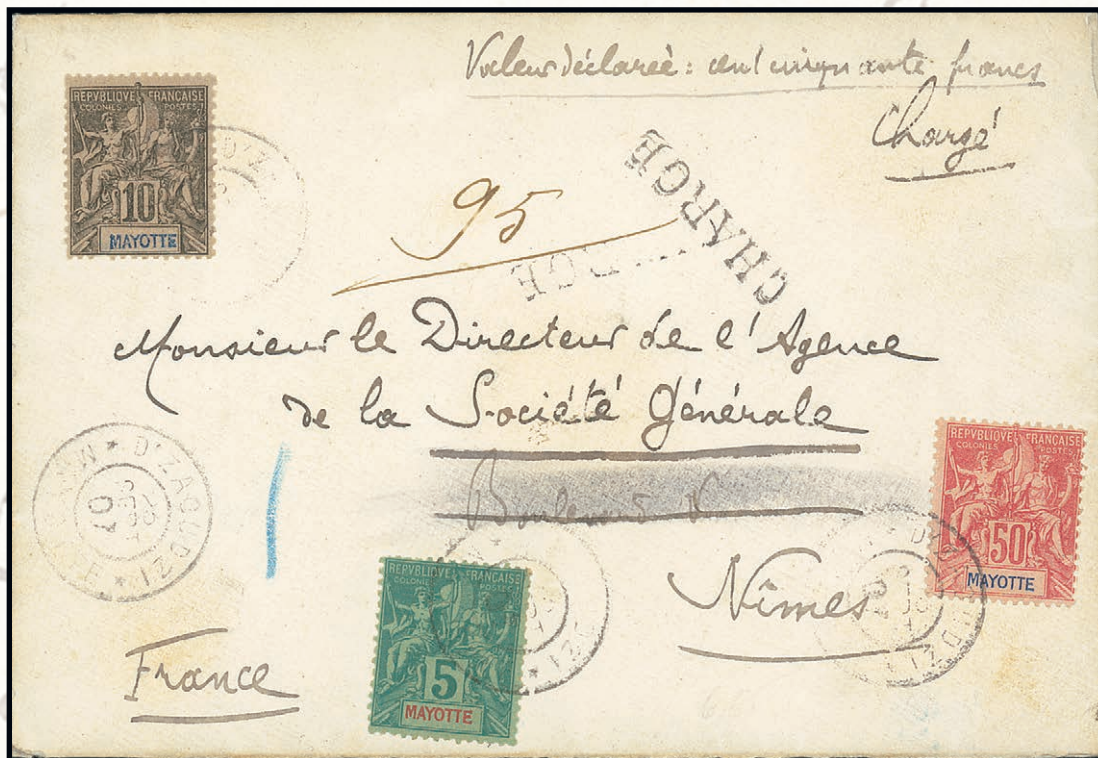 Valeur déclarée : cent cinquante francs
Chargé
REPVBLIQVE FRANÇAISE
COLONIES POSTES
10
MAYOTTE
CHARGÉ
95
RGE
Monsieur le Directeur de l'Agence
de la Société Générale
D'ZAOUDZI
07
Nîmes
France
REPVBLIQVE FRANÇAISE
COLONIES POSTES
50
MAYOTTE
REPVBLIQVE FRANÇAISE
COLONIES POSTES
5
MAYOTTE